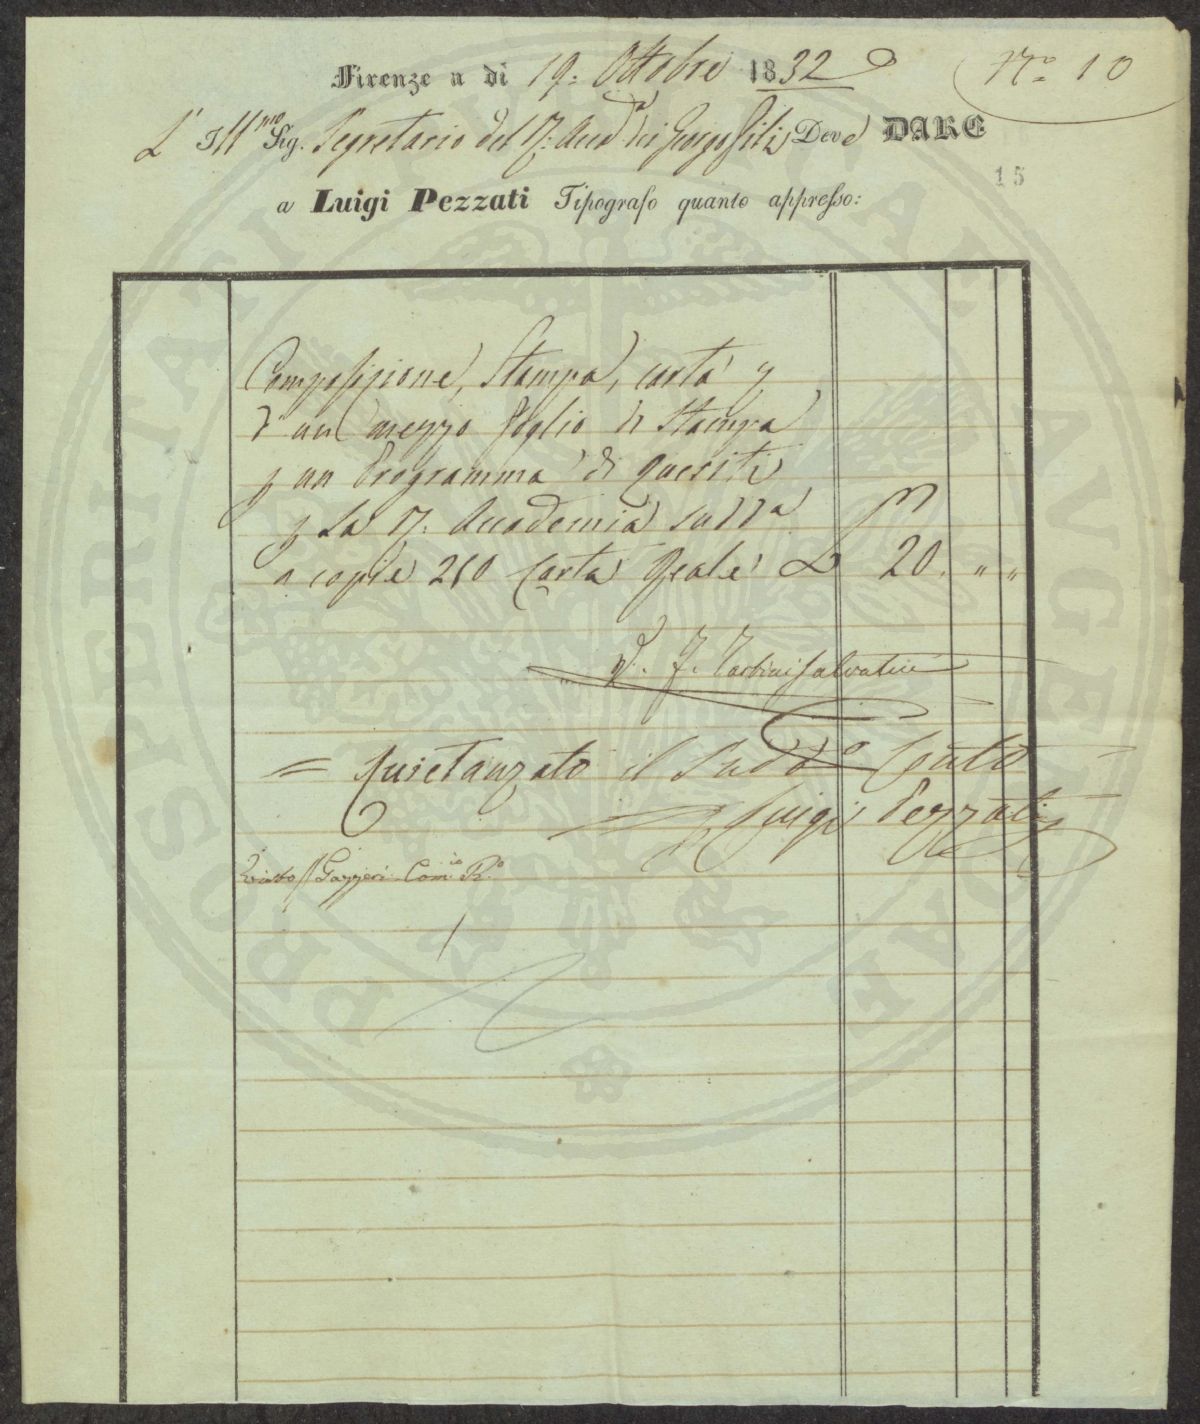 Nº 10
Firenze a di 19. Ottobre 1832
L' Ill.mo Sig. Segretario del R. Accad.a dei Georgofili Deve DARE
15
a Luigi Pezzati Tipografo quanto appresso:
Composizione, Stampa, carta
d' un mezzo foglio di Stampa
p un Programma di Quesiti
p La R. Accademia sudd.a
a copie 210 Carta Reale £ 20. " "
Tartini Salvatici
= Quietanzato il Sudd.o Conto =
Luigi Pezzati
Visto Gazzeri Com.io R.o
PROSPERITATI PUBLICAE AVGENDAE